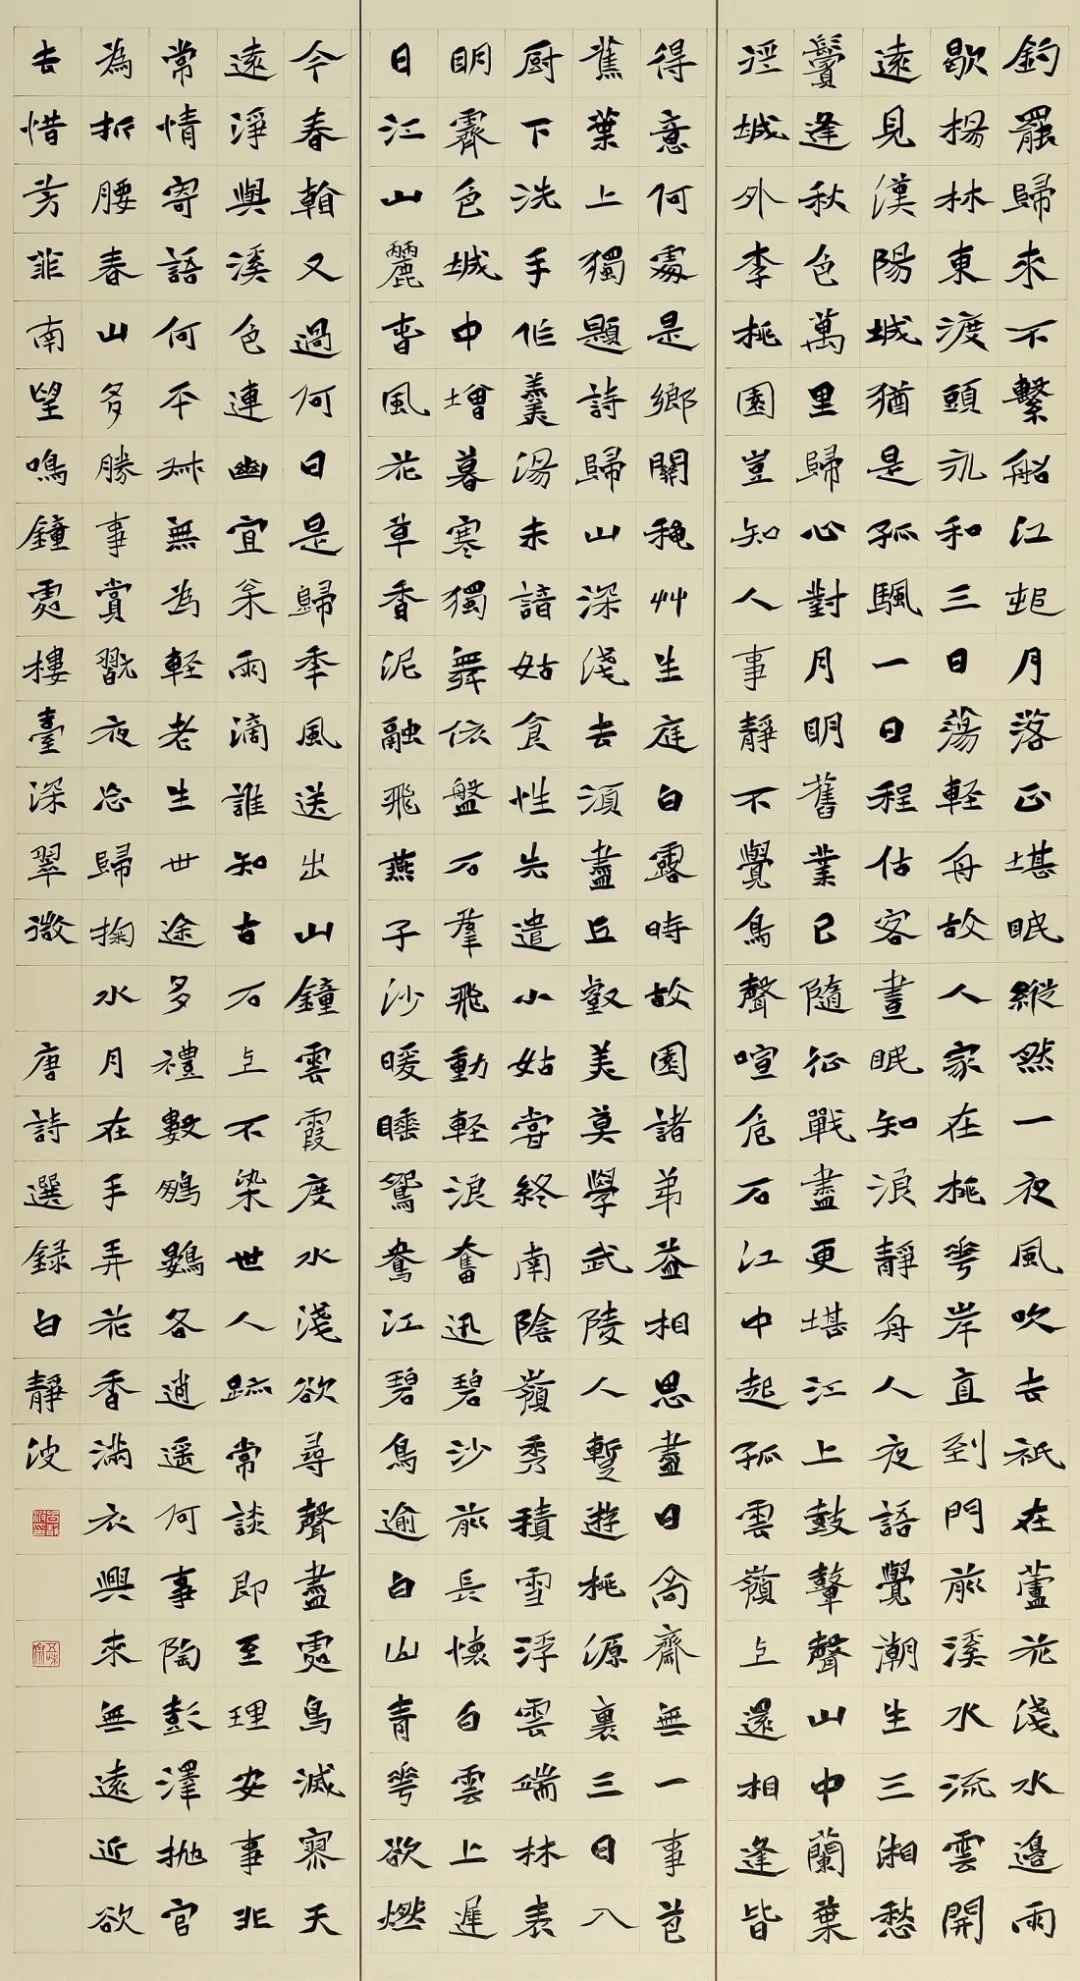 釣罷歸來不繫船江邨月落正堪眠縱然一夜風吹去祇在蘆花淺水邊雨
歇楊林東渡頭永和三日蕩輕舟故人家在桃花岸直到門前溪水流雲開
遠見漢陽城猶是孤颿一日程估客晝眠知浪靜舟人夜語覺潮生三湘愁
鬢逢秋色萬里歸心對月明舊業已隨征戰盡更堪江上鼓鼙聲山中蘭葉
徑城外李桃園豈知人事靜不覺鳥聲喧危石江中起孤雲嶺上還相逢皆
得意何處是鄉關穐艸生庭白露時故園諸弟益相思盡日高齋無一事芭
蕉葉上獨題詩歸山深淺去須盡丘壑美莫學武陵人暫遊桃源裏三日入
厨下洗手作羹湯未諳姑食性先遣小姑嘗終南陰嶺秀積雪浮雲端林表
明霽色城中增暮寒獨舞依盤石羣飛動輕浪奮迅碧沙前長懷白雲上遲
日江山麗春風花草香泥融飛燕子沙暖睡鴛鴦江碧鳥逾白山青花欲燃
今春看又過何日是歸年風送出山鐘雲霞度水淺欲尋聲盡處鳥滅寥天
遠淨與溪色連幽宜松雨滴誰知古石上不染世人跡常談即至理安事非
常情寄語何平叔無為輕老生世途多禮數鵬鷃各逍遥何事陶彭澤拋官
為折腰春山多勝事賞翫夜忘歸掬水月在手弄花香滿衣興來無遠近欲
去惜芳菲南望鳴鐘處樓臺深翠微 唐詩選録白靜波